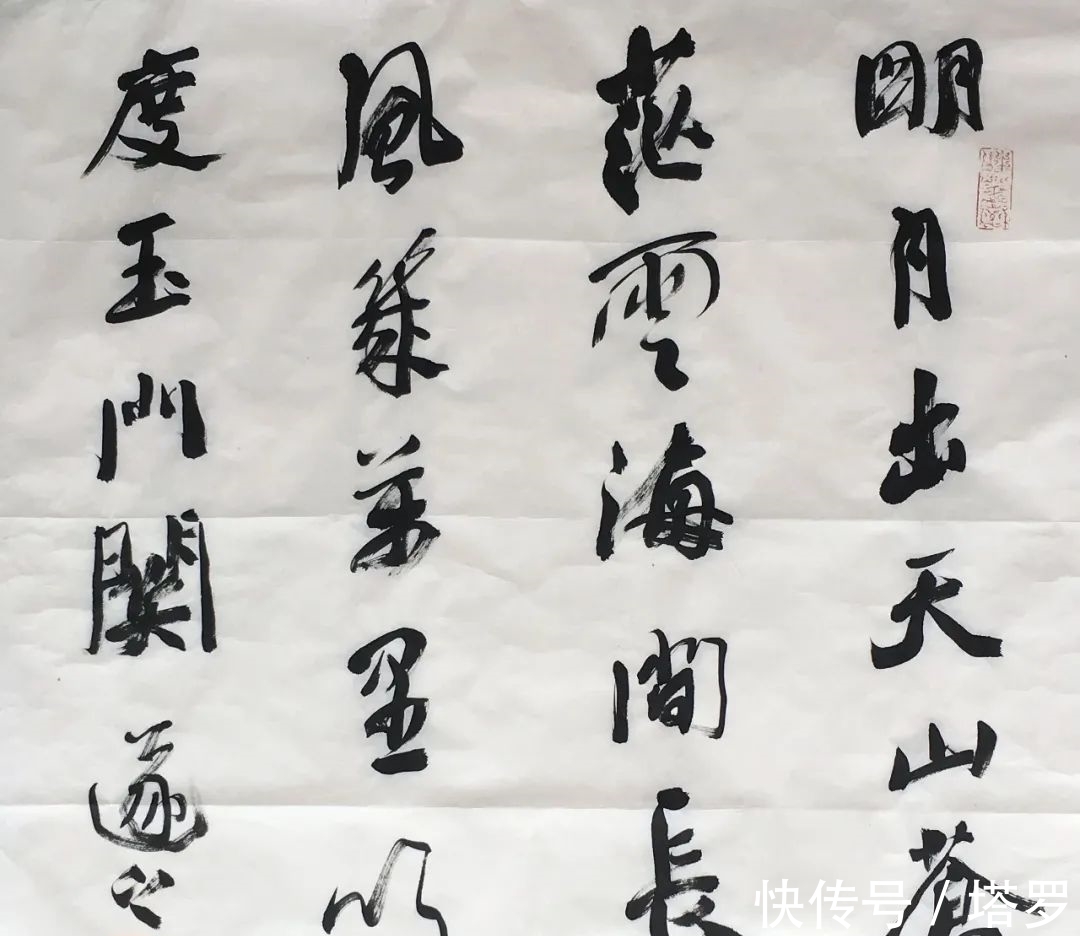 明月出天山蒼
茫雲海間長
風幾萬里吹
度玉門關 遂之
快传号 / 塔罗